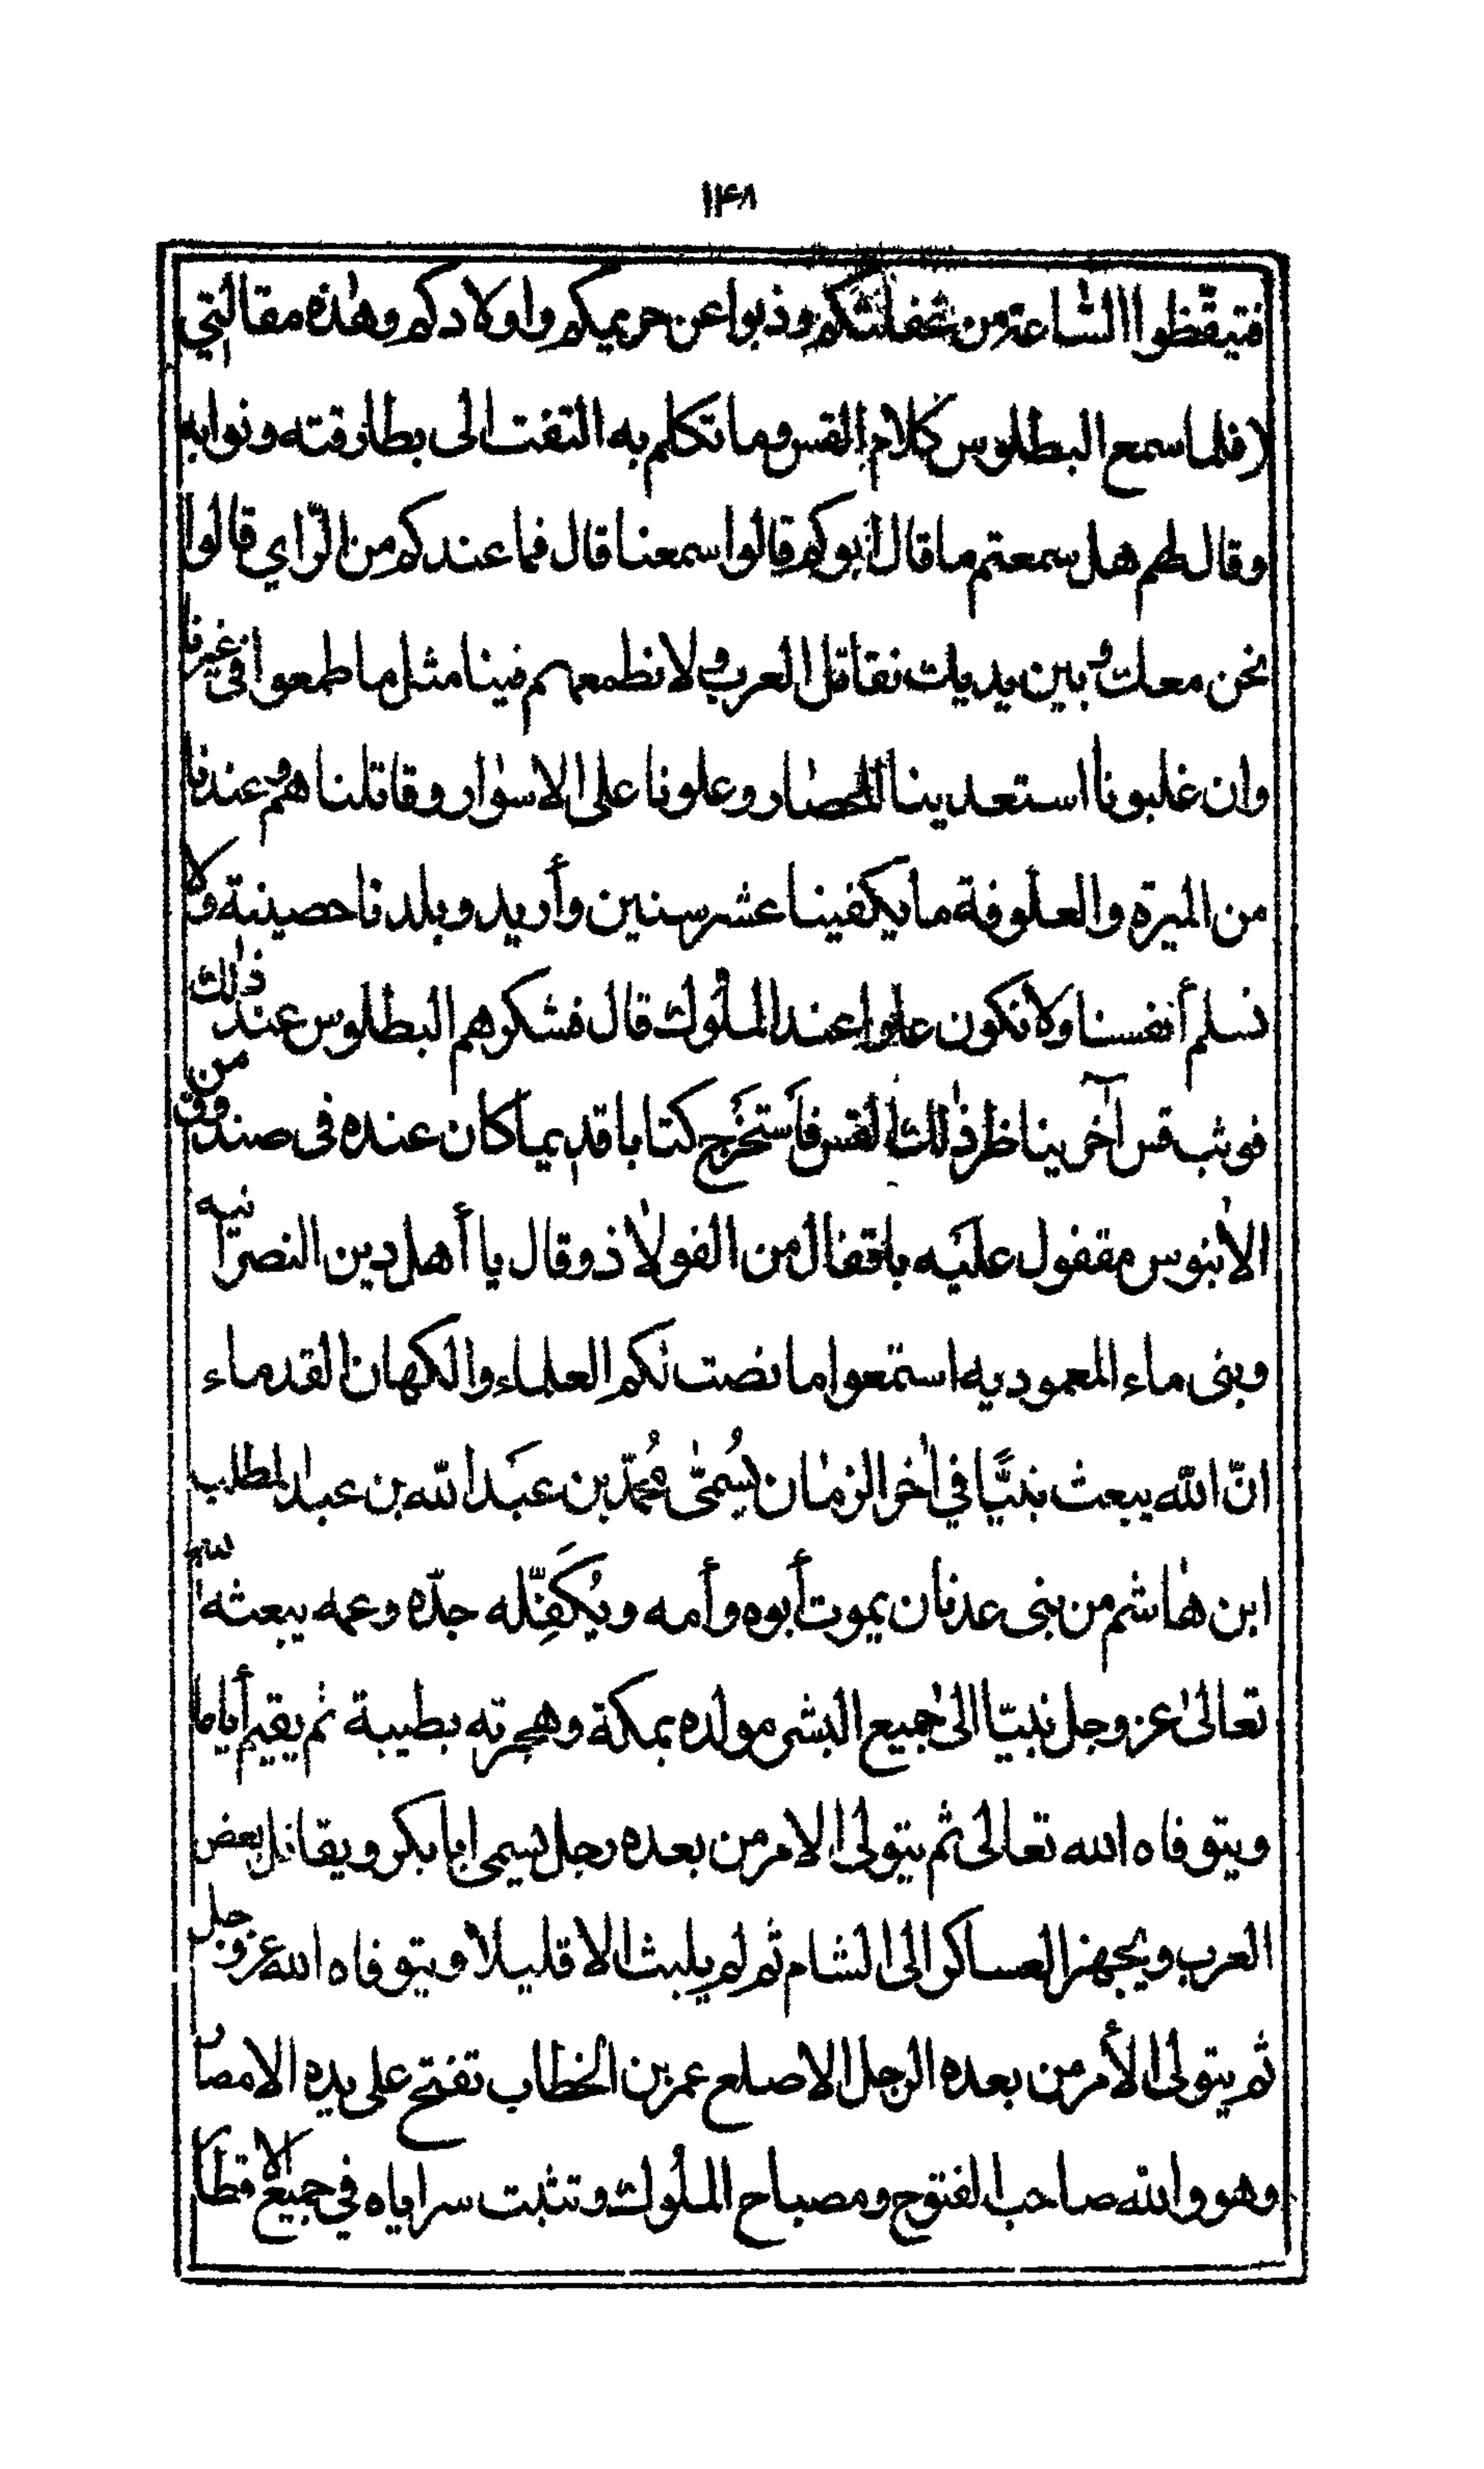 ۱۴۸
فتيقّظوا الساعة من غفلتكم وذبوا عن حريمكم واولادكم وهٰذه مقالتي
فلما سمع البطلوس كلام القس وما تكلم به التفت الى بطارقته ونوابه
وقال لهم هل سمعتم ما قال ابوكم قالوا سمعنا قال فما عندكم من الرّاي قالوا
نحن معك وبين يديك نقاتل العرب ولا نطمعهم فينا مثل ما طمعوا فى غيرنا
وان غلبونا استعدينا للحصار وعلونا على الاسوٰار وقاتلناهم وعندنا
من الميرة والعلوفة ما يكفينا عشر سنين وأريد وبلدنا حصينة ولا
نسلم أنفسنا ولا نكون عابوا عند الملوك قال فشكرهم البطلوس عند ذٰلك
فوثب قس آخر يناظر ذٰلك القس فاَستخَرج كتابا قديما كان عنده فى صندوق من
الاٰبنوس مقفول علَيه باقفال من الفولاذ وقال يا أهل دين النصرانيه
وبنى ماء المعموديه استمعوا ما نصت لكم العلماء والكهان القدماء
انّ الله يبعث نبيًّا في اٰخر الزمٰان يُسمىّٰ محُمّد بن عبَد الله بن عبد المطلب
ابن هٰاشم من بنى عدنان يموت أبوه وأمه ويُكَفِّله جدّه وعمه يبعثه اللّه
تعالىٰ عز وجل نبيّا الىٰ جميع البشر مولده بمكة وهجرته بطيبة ثم يقيم أياما
ويتوفاه الله تعالى ثم يتولى الامر من بعده رجل يسمى ابا بكر ويقاتل بعض
العرب ويجهز العساكر الى الشام ثم لم يلبث الا قليلا ويتوفاه الله عز وجل
ثم يتولى الأمر من بعده الرجل الاصلع عمر بن الخطاب تفتح على يده الامصار
وهو والله صاحب الفتوح ومصباح الملوك وتثبت سراياه في جميع الاقطار